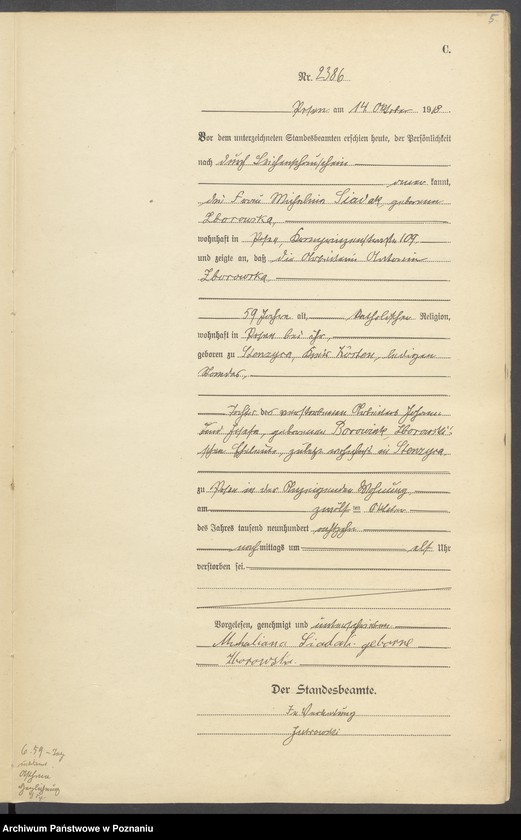 5.
C.
Nr. 2386
Posen am 14 Oktober 1918
Vor dem unterzeichneten Standesbeamten erschien heute, der Persönlichkeit
nach durch Leichenschauschein
kannt,
die Frau Michalina Siadak, geborene
Zborowska,
wohnhaft in Posen, Kronprinzenstraße 109
und zeigte an, daß die Arbeiterin Antonie
Zborowska,
59 Jahre alt, katholischer Religion,
wohnhaft in Posen bei ihr,
geboren zu Stenzyca, Kreis Kosten, ledigen
Standes,
Tochter der verstorbenen Arbeiters Johann
und Josefa, geborenen Borowiak, Zborowski'
schen Eheleute, zuletzt wohnhaft in Stenzyca,
zu Posen in der Anzeigenden Wohnung
am zwölften Oktober
des Jahres tausend neunhundert achtzehn
nachmittags um elf Uhr
verstorben sei.
Vorgelesen, genehmigt und unterschrieben
Michaliana Siadak geborne
Zborowska.
Der Standesbeamte.
In Vertretung
6.59
Archiwum Państwowe w Poznaniu